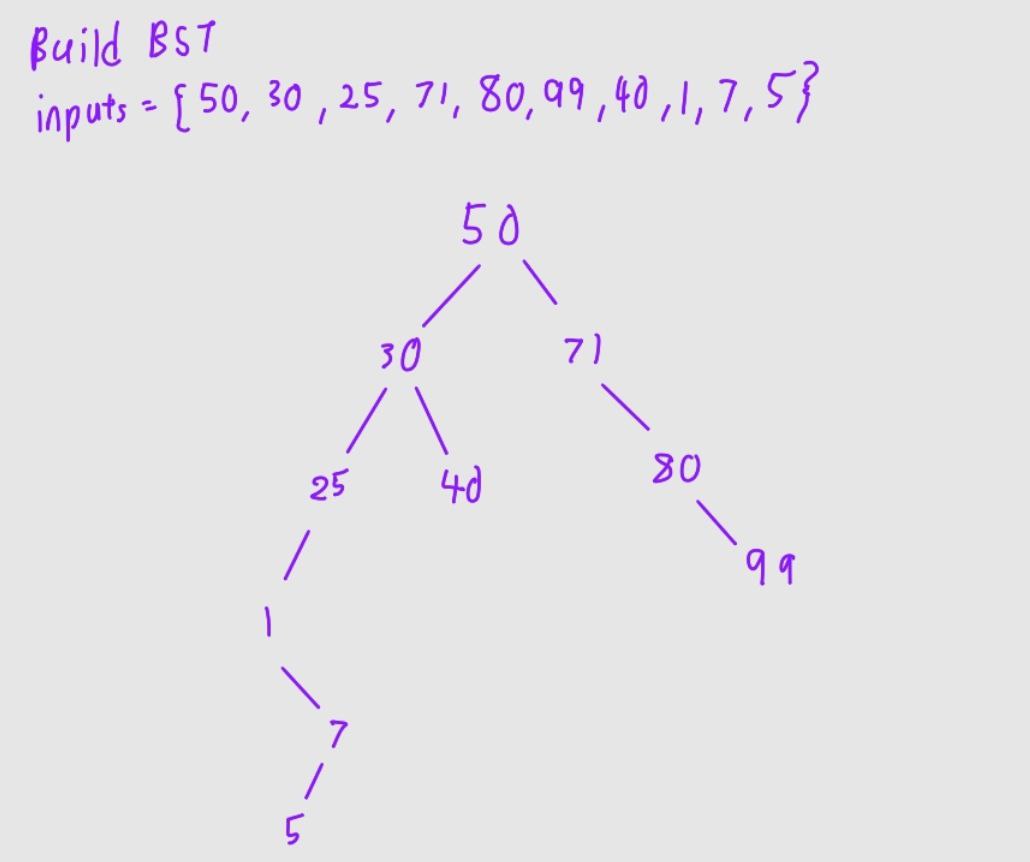 Build BST
inputs = { 50, 30, 25, 71, 80, 99, 40, 1, 7, 5}
50
30 71
25 40 80
99
1
7
5